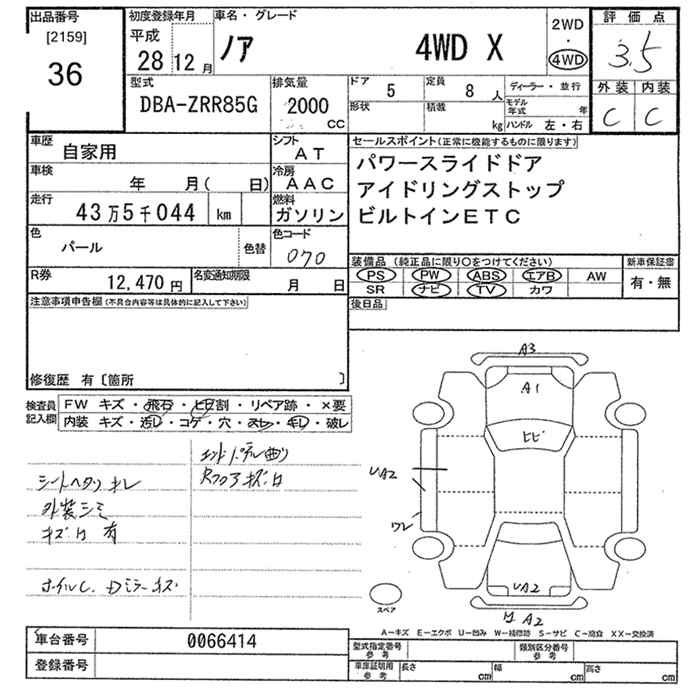 出品番号
[2159]
36
初度登録年月
平成
28 12月
車名・グレード
ノア 4WD X
2WD
・
4WD
評価点
3.5
外装 内装
C C
型式
DBA-ZRR85G
排気量
2000
CC
ドア 5
定員 8人
ディーラー・並行
形状
積載 kg
モデル年式 年
ハンドル 左・右
車歴 自家用
シフト AT
車検 年 月( 日)
冷房 AAC
走行 43万5千044 km
燃料 ガソリン
色 パール
色替
色コード 070
R券 12,470円
名変通知期限 月 日
セールスポイント(正常に機能するものに限ります)
パワースライドドア
アイドリングストップ
ビルトインETC
装備品(純正品に限り○をつけてください)
新車保証書
PS PW ABS エアB AW
SR ナビ TV カワ
有・無
後日品
注意事項申告欄(不具合内容等は具体的に記入して下さい)
修復歴 有〔箇所 〕
検査員記入欄
FW キズ・飛石・ヒビ割・リペア跡・×要
内装 キズ・汚レ・コゲ・穴・スレ・キレ・破レ
シートヘタリ キレ
外装シミ
キズ凹 有
ホイルC. Dミラーキズ
エンドパネル曲り
Rフロアキズ凹
A3
A1
ヒビ
UA2
ワレ
UA2
凹A2
スペア
A-キズ E-エクボ U-凹み W-補修跡 S-サビ C-腐食 XX-交換済
車台番号 0066414
登録番号
型式指定番号 参考
類別区分番号 参考
車庫証明用 参考
長さ cm
幅 cm
高さ cm